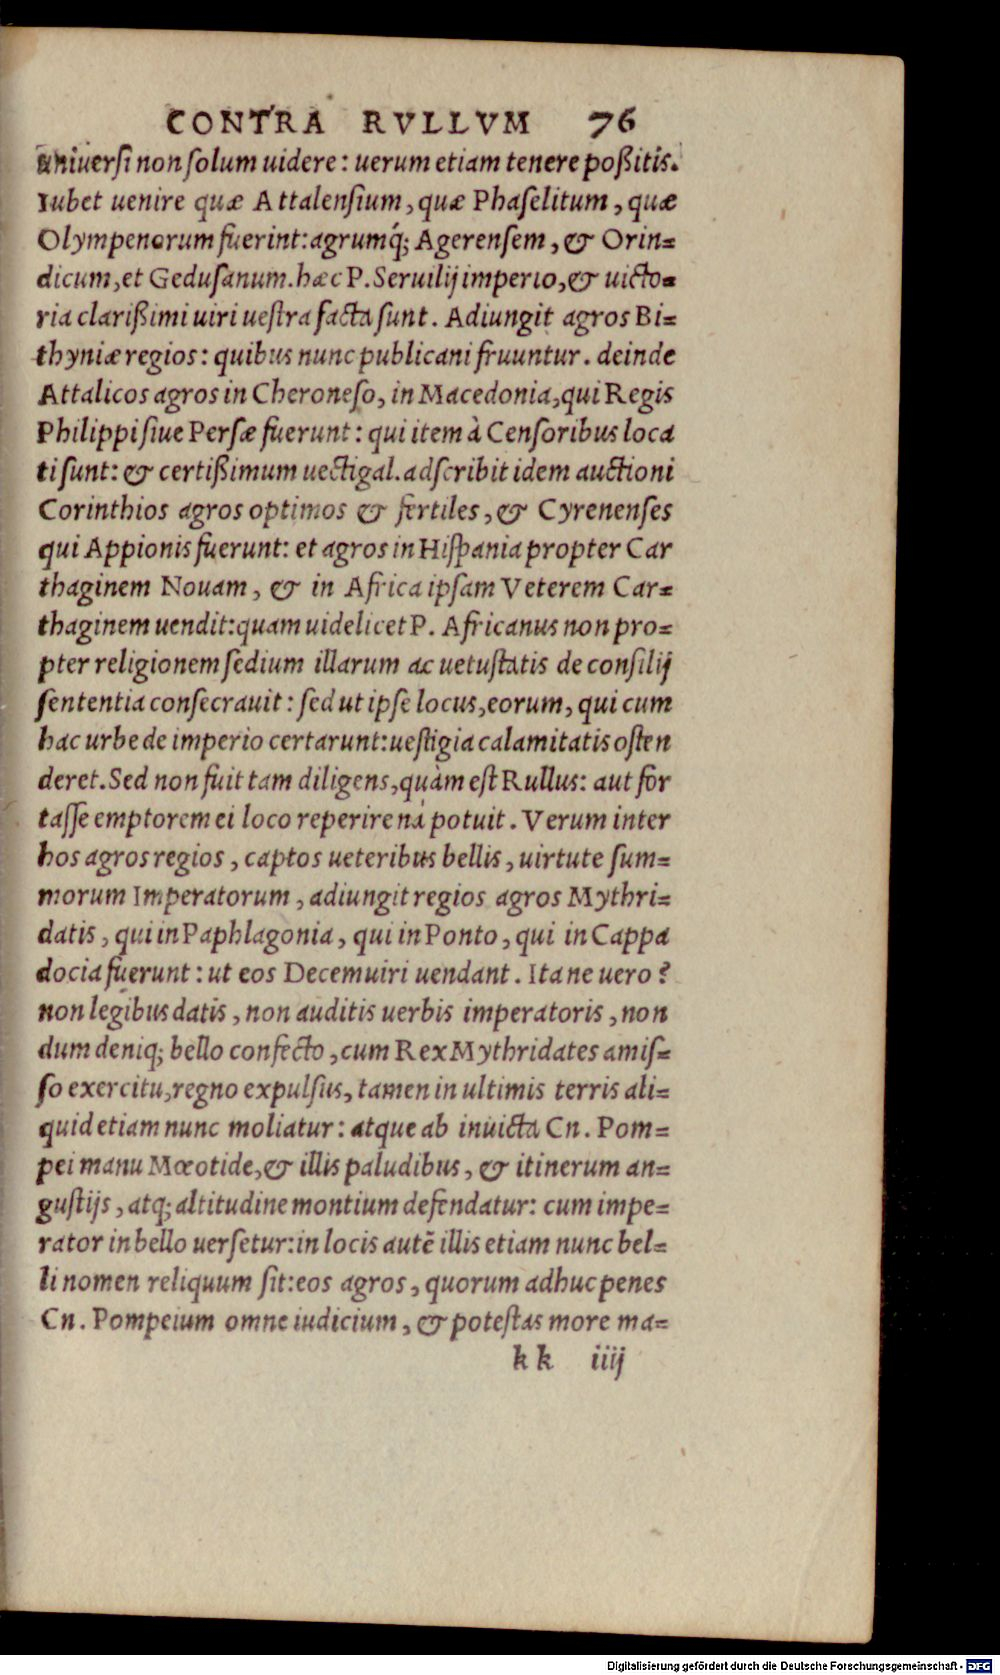 CONTRA RVLLVM 76
uniuersi non solum uidere: uerum etiam tenere poßitis.
Iubet uenire quæ Attalensium, quæ Phaselitum, quæ
Olympenorum fuerint: agrumq́; Agerensem, & Orin=
dicum, et Gedusanum. hæc P. Seruilij imperio, & uicto=
ria clarißimi uiri uestra facta sunt. Adiungit agros Bi=
thyniæ regios: quibus nunc publicani fruuntur. deinde
Attalicos agros in Cheroneso, in Macedonia, qui Regis
Philippi siue Persæ fuerunt: qui item à Censoribus loca
ti sunt: & certißimum uectigal. adscribit idem auctioni
Corinthios agros optimos & fertiles, & Cyrenenses
qui Appionis fuerunt: et agros in Hispania propter Car
thaginem Nouam, & in Africa ipsam Veterem Car=
thaginem uendit: quam uidelicet P. Africanus non pro=
pter religionem sedium illarum ac uetustatis de consilij
sententia consecrauit: sed ut ipse locus, eorum, qui cum
hac urbe de imperio certarunt: uestigia calamitatis osten
deret. Sed non fuit tam diligens, quàm est Rullus: aut for
tasse emptorem ei loco reperire nō potuit. Verum inter
hos agros regios, captos ueteribus bellis, uirtute sum=
morum Imperatorum, adiungit regios agros Mythri=
datis, qui in Paphlagonia, qui in Ponto, qui in Cappa
docia fuerunt: ut eos Decemuiri uendant. Ita ne uero?
non legibus datis, non auditis uerbis imperatoris, non
dum deniq; bello confecto, cum Rex Mythridates amis=
so exercitu, regno expulsus, tamen in ultimis terris ali=
quid etiam nunc moliatur: atque ab inuicta Cn. Pom=
pei manu Mœotide, & illis paludibus, & itinerum an=
gustijs, atq; altitudine montium defendatur: cum impe=
rator in bello uersetur: in locis autē illis etiam nunc bel=
li nomen reliquum sit: eos agros, quorum adhuc penes
Cn. Pompeium omne iudicium, & potestas more ma=
kk iiij
Digitalisierung gefördert durch die Deutsche Forschungsgemeinschaft - DFG